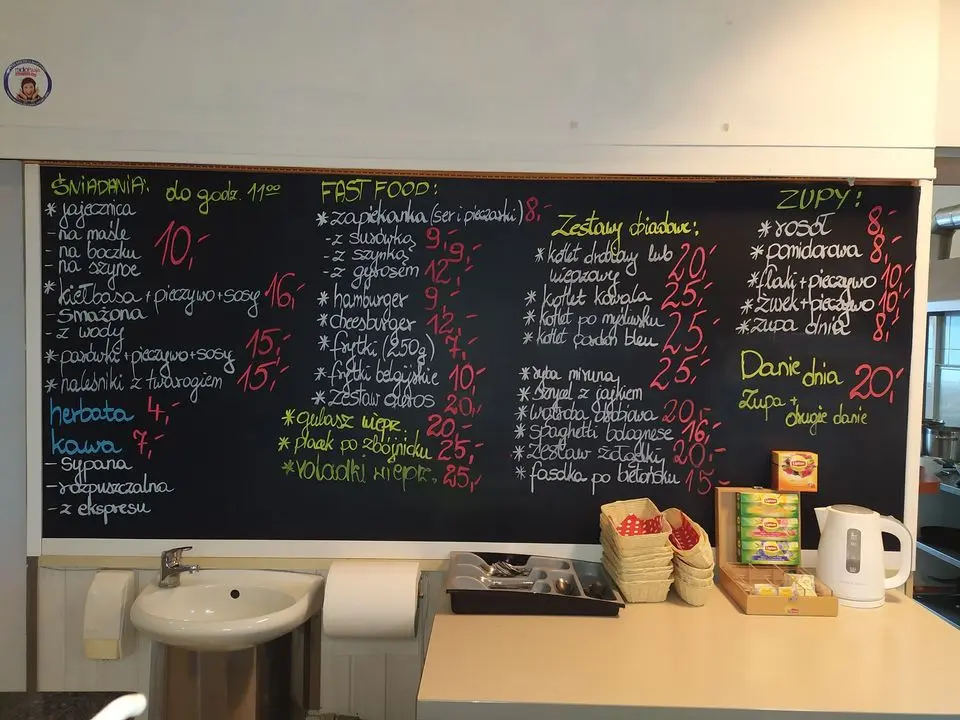 ŚNIADANIA: do godz. 11⁰⁰
* jajecznica
- na maśle
- na boczku
- na szynce
10,-
* kiełbasa + pieczywo + sosy 16,-
- smażona
- z wody
* parówki + pieczywo + sosy 15,-
* naleśniki z twarogiem 15,-
herbata 4,-
kawa 7,-
- sypana
- rozpuszczalna
- z ekspresu
FAST FOOD:
* zapiekanka (ser i pieczarki) 8,-
- z surówką 9,-
- z szynką 9,-
- z gyrosem 12,-
* hamburger 9,-
* cheesburger 12,-
* frytki (250g) 7,-
* frytki belgijskie 10,-
* zestaw 20,-
* gulasz wieprz. 20,-
* placek po zbójnicku 25,-
* wieprz. 25,-
Zestawy obiadowe:
* kotlet drobiowy lub
wieprzowy 20,-
* kotlet kowala 25,-
* kotlet po myśliwsku
* kotlet bleu 25,-
* ryba miruna 25,-
* z jajkiem
* wątroba drobiowa 20,-
* spaghetti bolognese 16,-
* zestaw 20,-
* fasolka po bretońsku 15,-
ZUPY:
* rosół 8,-
* pomidorowa 8,-
* flaki + pieczywo 10,-
* żurek + pieczywo 10,-
* zupa dnia 8,-
Danie dnia 20,-
Zupa +
drugie danie
Lipton